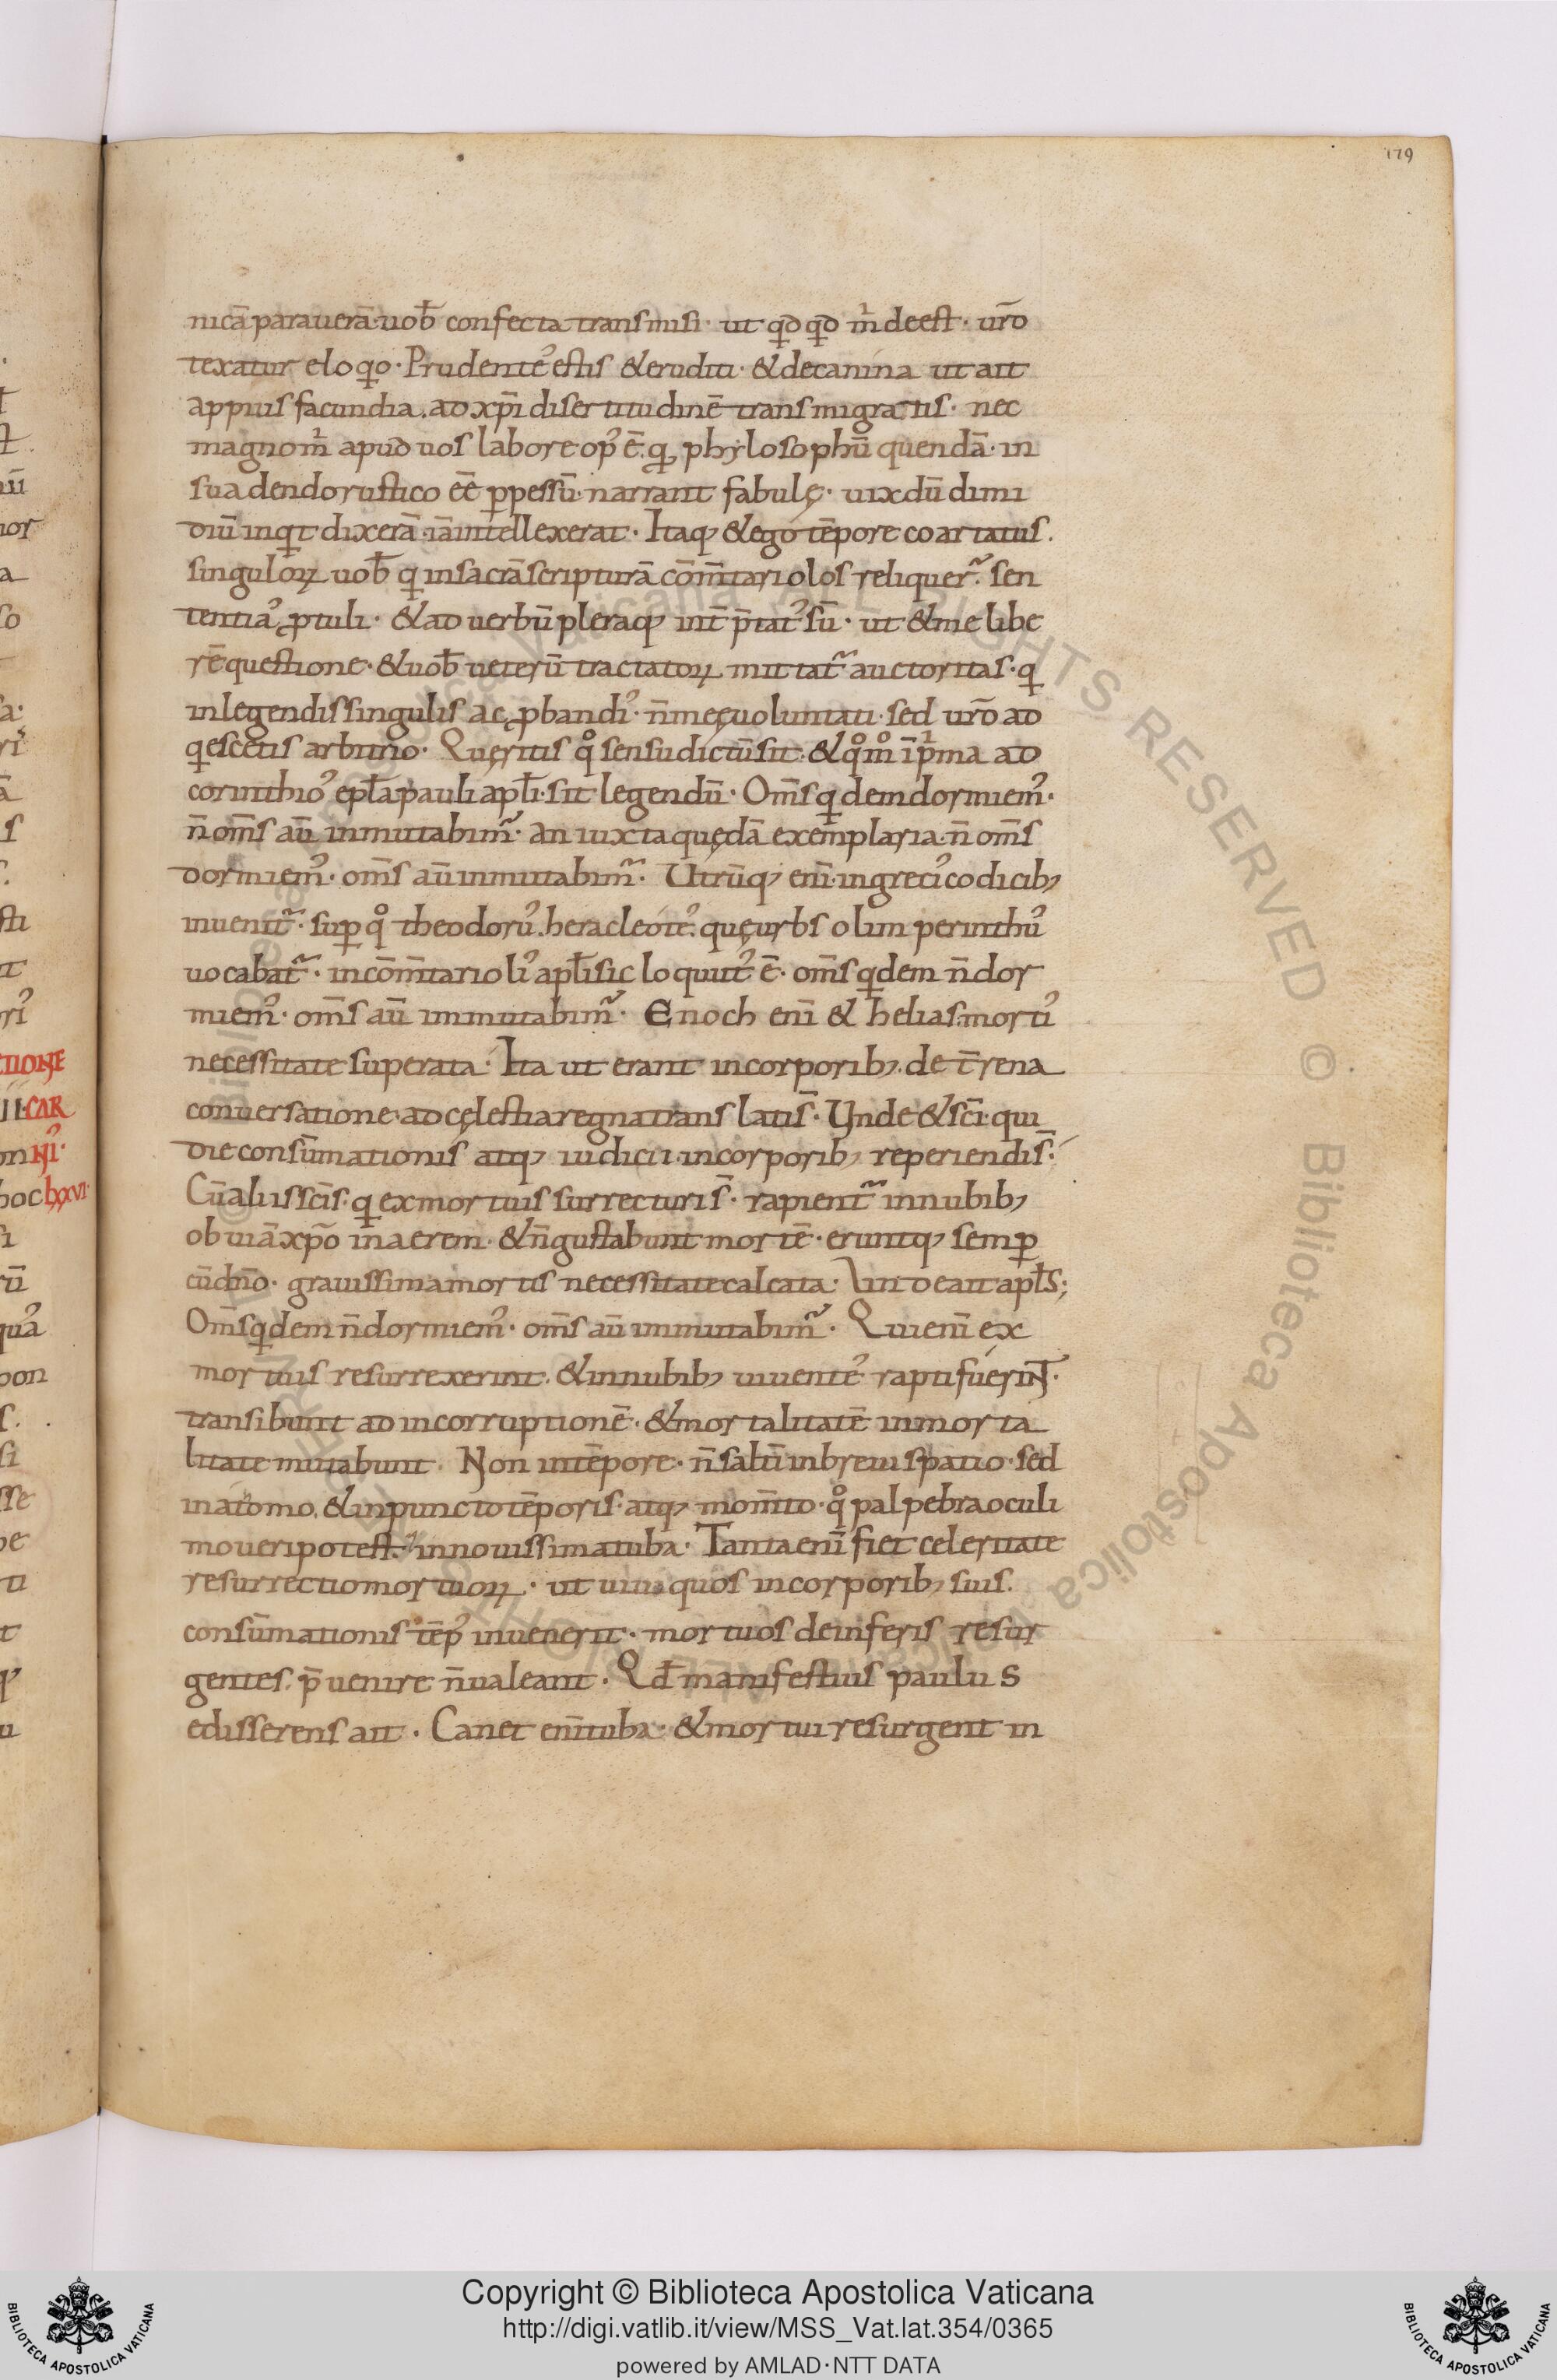 179
nicā parauerā· uob̄ confecta transmisi· ut qͥd qͥd mͥ deest· ur̄o
texatur eloqͥo· Prudenteʼ estis & eruditi· & de canina ut ait
appius facundia. ad xp̄i disertitudinē transmigratis· nec
magno mͥ apud uos labore opʼ ē· qͥ phylosophū quendā· in
suadendo rustico eē ꝑpessū· narrant fabulę· uix dū dimi
diū inqͥt dixerā· iā intellexerat· Itaqꝫ & ego tēpore coartatus.
singuloꝝ uob̄ qͥ in sacrā scripturā cōm̄tariolos reliquer̄· sen
tentiaʼ ꝓtuli· & ad uerbū pleraqꝫ int̄p̄tatʼ sū· ut & me libe
rē questione· & uob̄ ueterū tractatoꝝ mittat̄ auctoritas· qͥ
in legendis singulis ac ꝓbandiʼ· n̄ meę uoluntati· sed ur̄o ad
qͥescetis arbitrio· Queritis qͦ sensu dictū sit· & qͦmͦ ī pͥma ad
corinthioʼ epl̄a pauli apl̄i· sit legendū· Om̄s qͥdem dormiemʼ·
n̄ om̄s aū inmutabim̄· an iuxta quędā exemplaria· n̄ om̄s
dormiemʼ· om̄s aū inmutabim̄· Utrūqꝫ eni̅· in greciʼ codicibꝫ
inuenit̄· suꝑ qͦ theodoruʼ. heracleoteʼ. quę urbs olim perinthuʼ
uocabat̄· in cōm̄tarioliʼ apl̄i sic loquutʼ ē· om̄s qͥdem n̄ dor
miemʼ· om̄s aū inmutabim̄· Enoch eni̅ & helias· mortiʼ
necessitate superata· Ita ut erant in corporibꝫ. de t̄rena
conuersatione· ad cęlestia regna translati s̄· Unde & sc̄i· qui
die consūmationis atqꝫ iudicii· in corporibꝫ reperiendi s̄·
Cū aliis sc̄is· qͥ ex mortuis surrecturi s̄· rapient̄ in nubibꝫ
obuiā xp̄o in aerem· & n̄ gustabunt mortē· eruntqꝫ semꝑ
cū dn̄o· grauissima mortis necessitate calcata· Unde ait apl̄s;
Om̄s qͥdem n̄ dormiemʼ· om̄s aū inmutabim̄· Qui eni̅ ex
mortuis resurrexerint. & in nubibꝫ uiuenteʼ rapti fuerint̄·
transibunt ad incorruptionē· & mortalitatē inmorta
litate mutabunt· Non in tēpore· n̄ saltī in breui spatio· sed
in atomo. & in puncto tēporis· atqꝫ mom̄to· qͦ palpebra oculi
moueri potest· in nouissima tuba· Tanta eni̅ fiet celeritate
resurrectio mortuoꝝ· ut uiui quos in corporibꝫ suis.
consūmationis tēpʼ inuenerit· mortuos de inferis resur
gentes. p̄uenire n̄ ualeant· Qd̄ manifestius paulus
edisserens ait· Canet eni̅ tuba· & mortui resurgent in
Copyright © Biblioteca Apostolica Vaticana
http://digi.vatlib.it/view/MSS_Vat.lat.354/0365
powered by AMLAD·NTT DATA